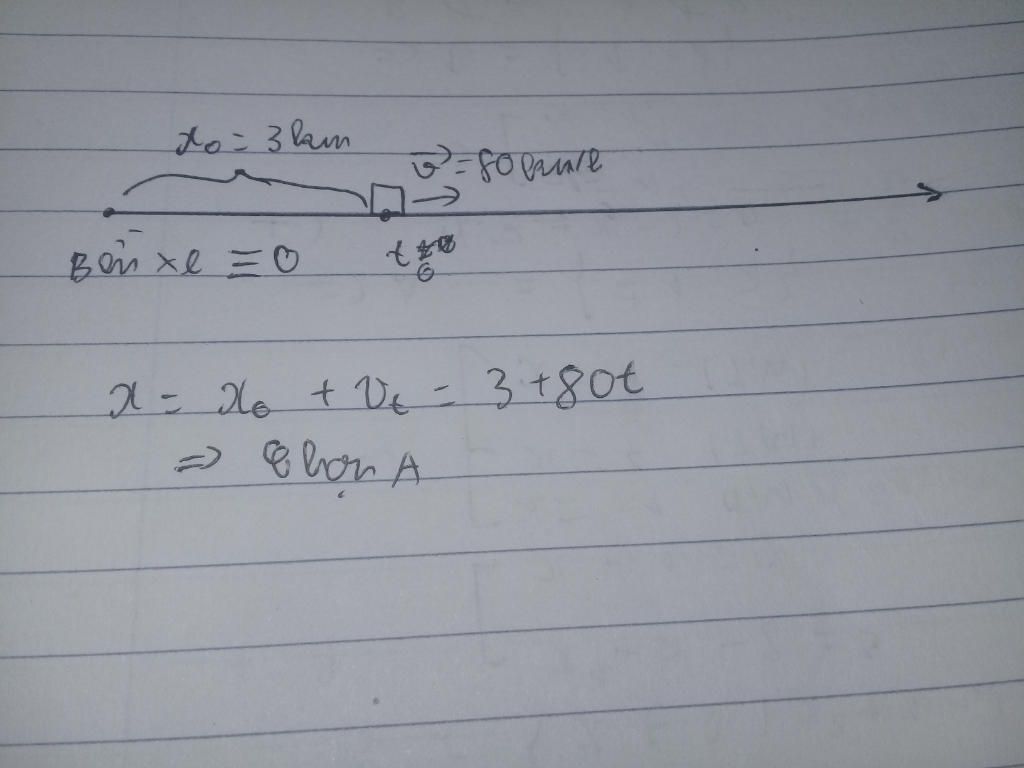 x₀ = 3 km
v⃗ = 80 km/h
Bến xe ≡ O
t₀
x = x₀ + vt = 3 + 80t
⇒ Chọn A